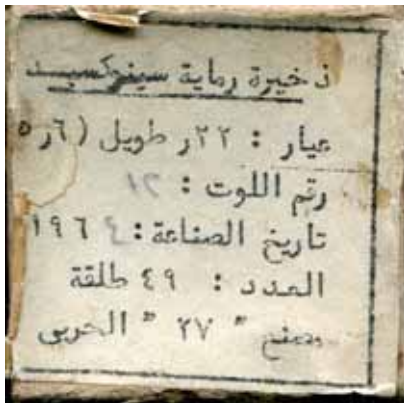 ذخيرة رماية سينوكسيد
عيار : ٢٢ر طويل (٦ر٥
رقم اللوت : ١٢
تاريخ الصناعة : ١٩٦٤
العدد : ٤٩ طلقة
مصنع " ٢٧ " الحربى